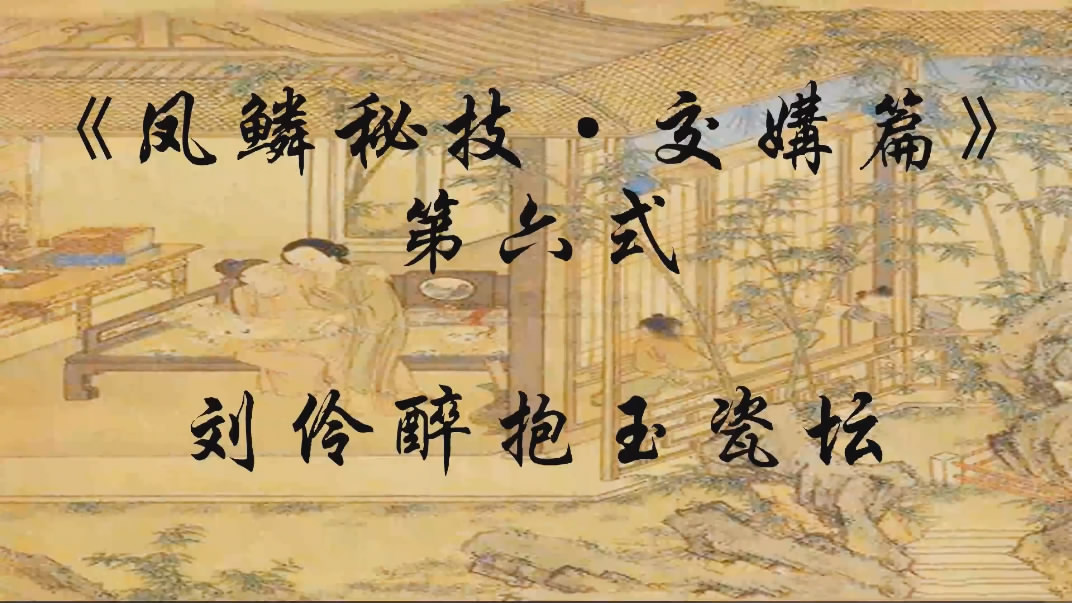 《凤鳞秘技·交媾篇》
第六式
刘伶醉抱玉瓷坛